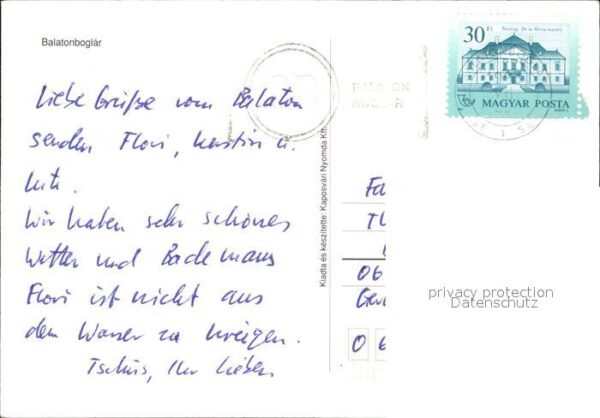 Balatonboglár
Liebe Grüße vom Balaton
senden Flori, Kerstin u.
Wir haben sehr schönes
Wetter und Bademaus
Flori ist nicht aus
dem Wasser zu kreigen.
Tschüs, Ihr Lieben
Kiadta és készítette: Kaposvári Nyomda Kft.
BALATON
BOGLÁR
30 Ft
MAGYAR POSTA
Fa
Th
06
Ger
0 6
privacy protection
Datenschutz